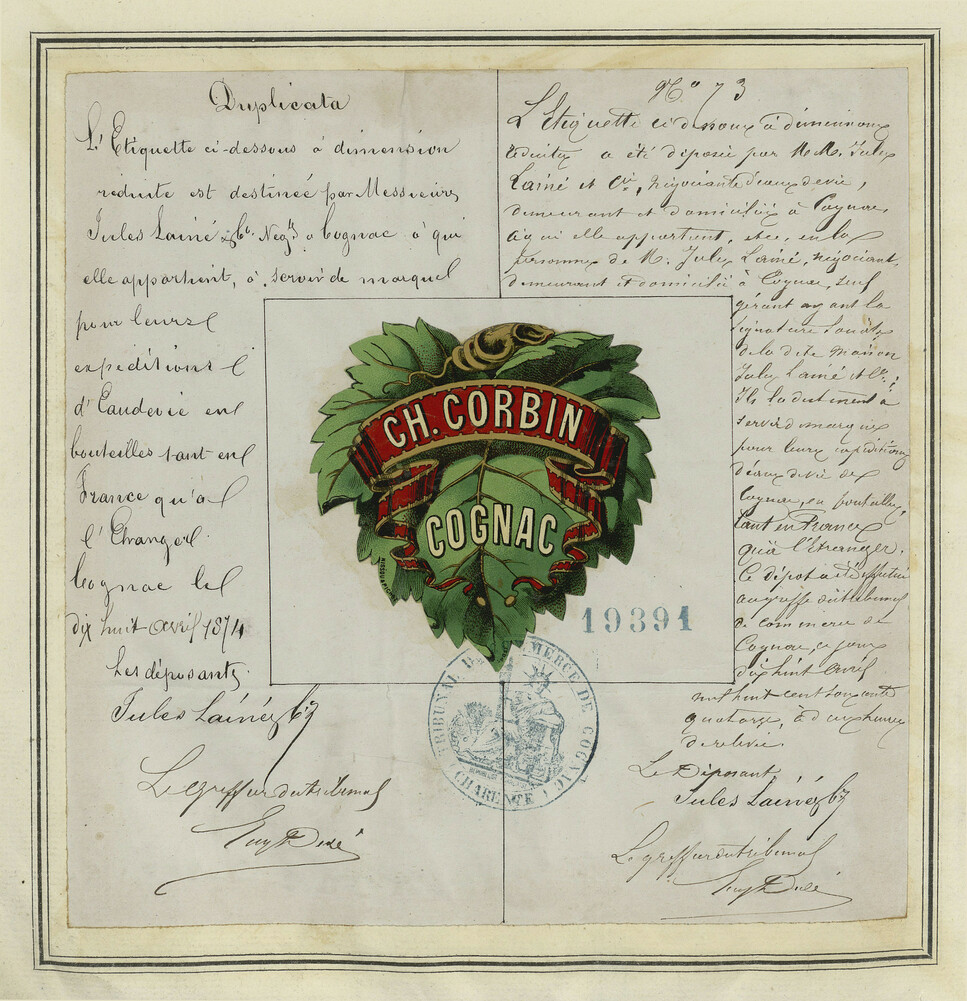 Duplicata
L'Etiquette ci-dessous à dimension
réduite est destinée par Messieurs
Jules Lainé & Cie Negts à Cognac à qui
elle appartient, à servir de marque
pour leurs
expeditions
d'Eaudevie en
bouteilles tant en
France qu'à
l'Etranger
Cognac le
dix huit Avril 1874
Les déposants
Jules Lainé & Cie
Le greffier du tribunal
No 73
L'Etiquette ci dessous à dimensions
réduites a été déposée par M.M. Jules
Lainé et Cie, négociants d'eaux de vie,
demeurant et domiciliés à Cognac,
à qui elle appartient, etc, en la
personne de M. Jules Lainé, négociant,
demeurant et domicilié à Cognac, seul
gérant ayant la
signature sociale
de la dite maison
Jules Lainé et Cie;
Ils la destinent à
servir de marque
pour leurs expéditions
d'eaux de vie de
Cognac, en bouteilles,
tant en France
qu'à l'étranger.
Ce dépôt a été effectué
au greffe du tribunal
de commerce de
Cognac, ce jour
dix huit avril
mil huit cent soixante
quatorze, à deux heures
de relevée
Le Déposant
Jules Lainé & Cie
Le greffier du tribunal
CH. CORBIN
COGNAC
19391
TRIBUNAL DE COMMERCE DE COGNAC
CHARENTE